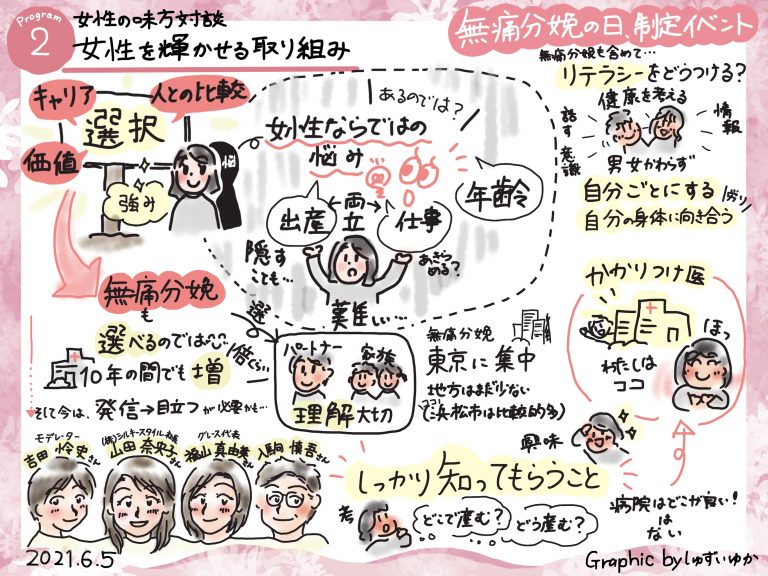 Program
2
女性の味方対談
女性を輝かせる取り組み
無痛分娩の日、制定イベント
キャリア
人との比較
選択
価値
強み
悩
あるのでは?
女性ならではの
悩み
年齢
出産
両立
仕事
隠す
ことも…
あきらめる?
難しい…
無痛分娩も含めて…
リテラシーをどうつける?
健康を考える
話す
意識
情報
男女かわらず
自分ごとにする
自分の身体に向き合う
かかりつけ医
わたしは
ココ
ほっ
無痛分娩
も
選べるのでは
10年の間でも増
倍ぐらい
そして今は、発信→目立つが必要かも…
選
パートナー
家族
理解大切
無痛分娩
東京に集中
地方はまだ少ない
浜松市は比較的多
興味
しっかり知ってもらうこと
考
どこで産む?
どう産む?
病院はどこが良い!
は
ない
モデレーター
吉田 怜史さん
(株)シルキースタイル社長
山田 奈央子さん
グレース代表
福山 真由美さん
入駒 慎吾さん
2021.6.5
Graphic by しゅずいゆか